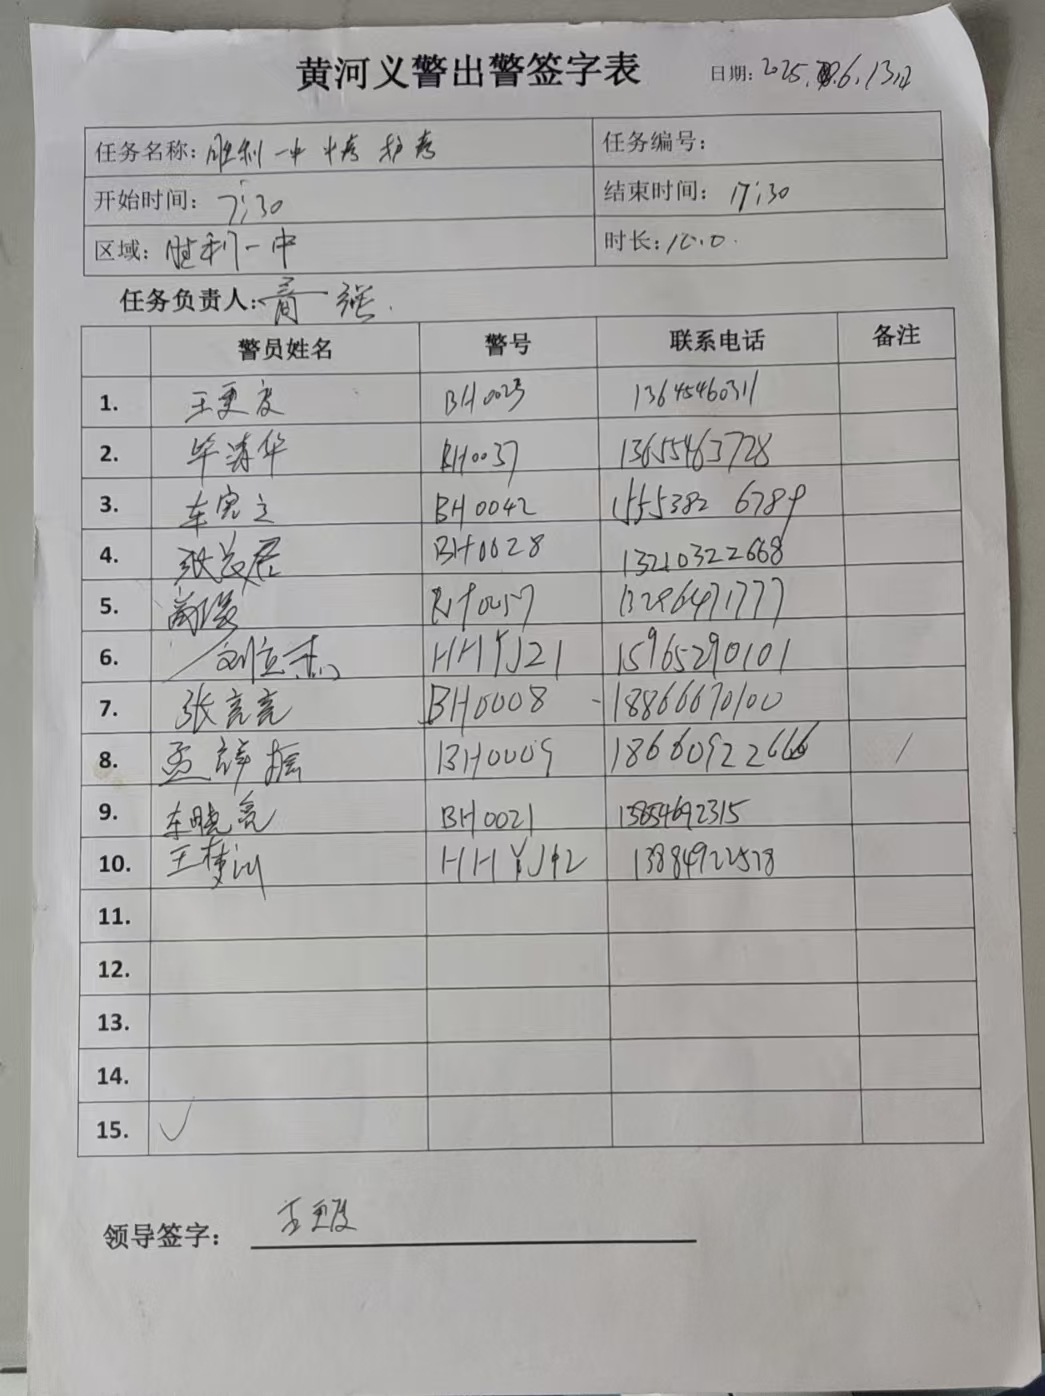 黄河义警出警签字表
日期: 2025.6.13
任务名称: 胜利一中中考护考 任务编号:
开始时间: 7:30 结束时间: 17:30
区域: 胜利一中 时长: 10.0.
任务负责人:
警员姓名 警号 联系电话 备注
1. 王更度 BH0023 13645460311
2. 毕清华 BH0037 13655463728
3. BH0042 15553826789
4. BH0028 13210322668
5. 13296471777
6. 刘立杰 HHYJ21 15965290101
7. 张亮亮 BH0008 18866670100
8. BH0009 18660922666
9. 车晓亮 BH0021 13854692315
10. 王梦 HHYJ42 13884922578
11.
12.
13.
14.
15. ✓
领导签字: 王更度